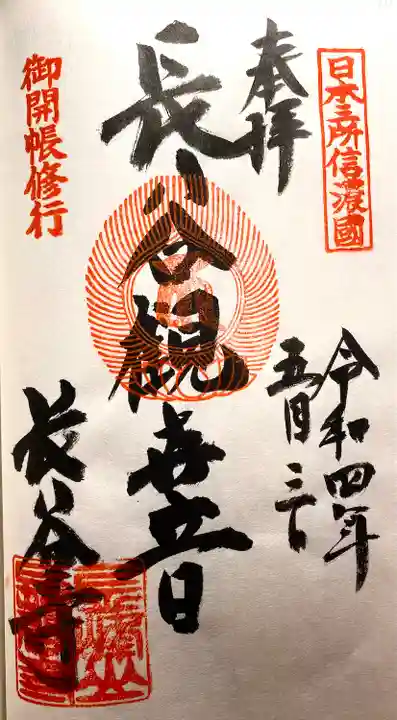 日本三所信濃國
奉拝
令和四年
五月三日
長谷観音
長谷寺
御開帳修行